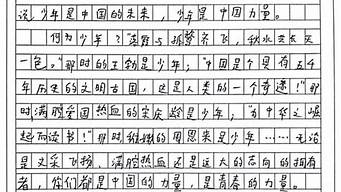 说，少年是中国的未来，少年是中国力量。
何为少年？“落霞与孤鹜齐飞，秋水共长天
一色。”那时的王勃是少年；“中国是个具有五千
年历史的文明古国，这是人类的一个奇迹！”那
时满腔爱国热血的宋庆龄是少年；“为中华之崛
起而读书！”那时稚嫩的周恩来是少年……无论
是文采飞扬、满腔热血还是远大的志向的拥有
者，你们都是中国的力量，是青春的力量。